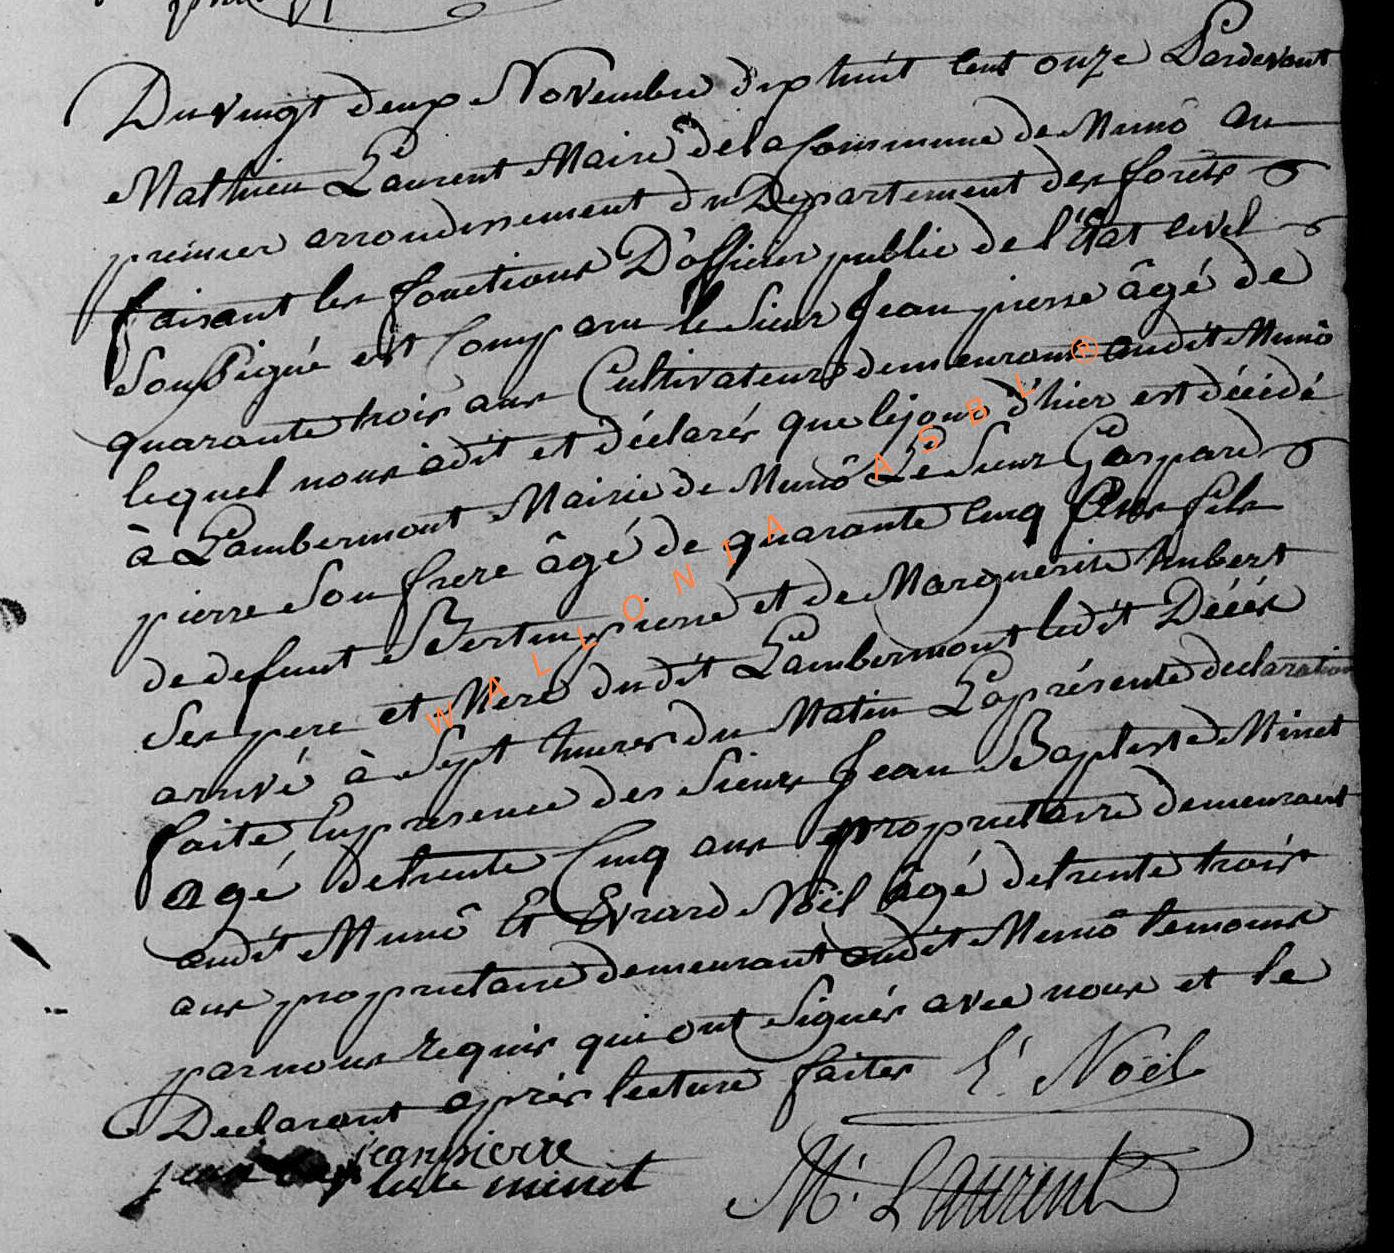 Du vingt deux Novembre dix huit cent onze Pardevant
Mathieu Laurent Maire de la Commune de Munô au
premier arrondissement du Departement des forêts
faisant les fonctions D'officier public de l'État civil
Soussigné est Comparu le Sieur Jean pierre âgé de
quarante trois ans Cultivateurs demeurant audit Munô
lequel nous a dit et déclarés que le jour d'hier est décédé
à Lambermont Mairie de Munô Le Sieur Gaspard
pierre son frere âgé de quarante cinq Ans fils
de defunt Bertin pierre et de Marguerite hubert
Ses pere et Mere dudit Lambermont ledit Décés
arrivé à Sept heures du Matin La présente declaration
faite En presence des Sieurs Jean Baptiste Minet
agé de trente Cinq ans proprietaire demeurant
audit Munô Et Evrard Noël âgé de trente trois
ans proprietaire demeurant audit Munô temoins
par nous requis qui ont Signés avec nous et le
Declarant après lecture faites E. Noël
jean pierre
jean bap tiste minet M. Laurent
WALLONIA ASBL ®